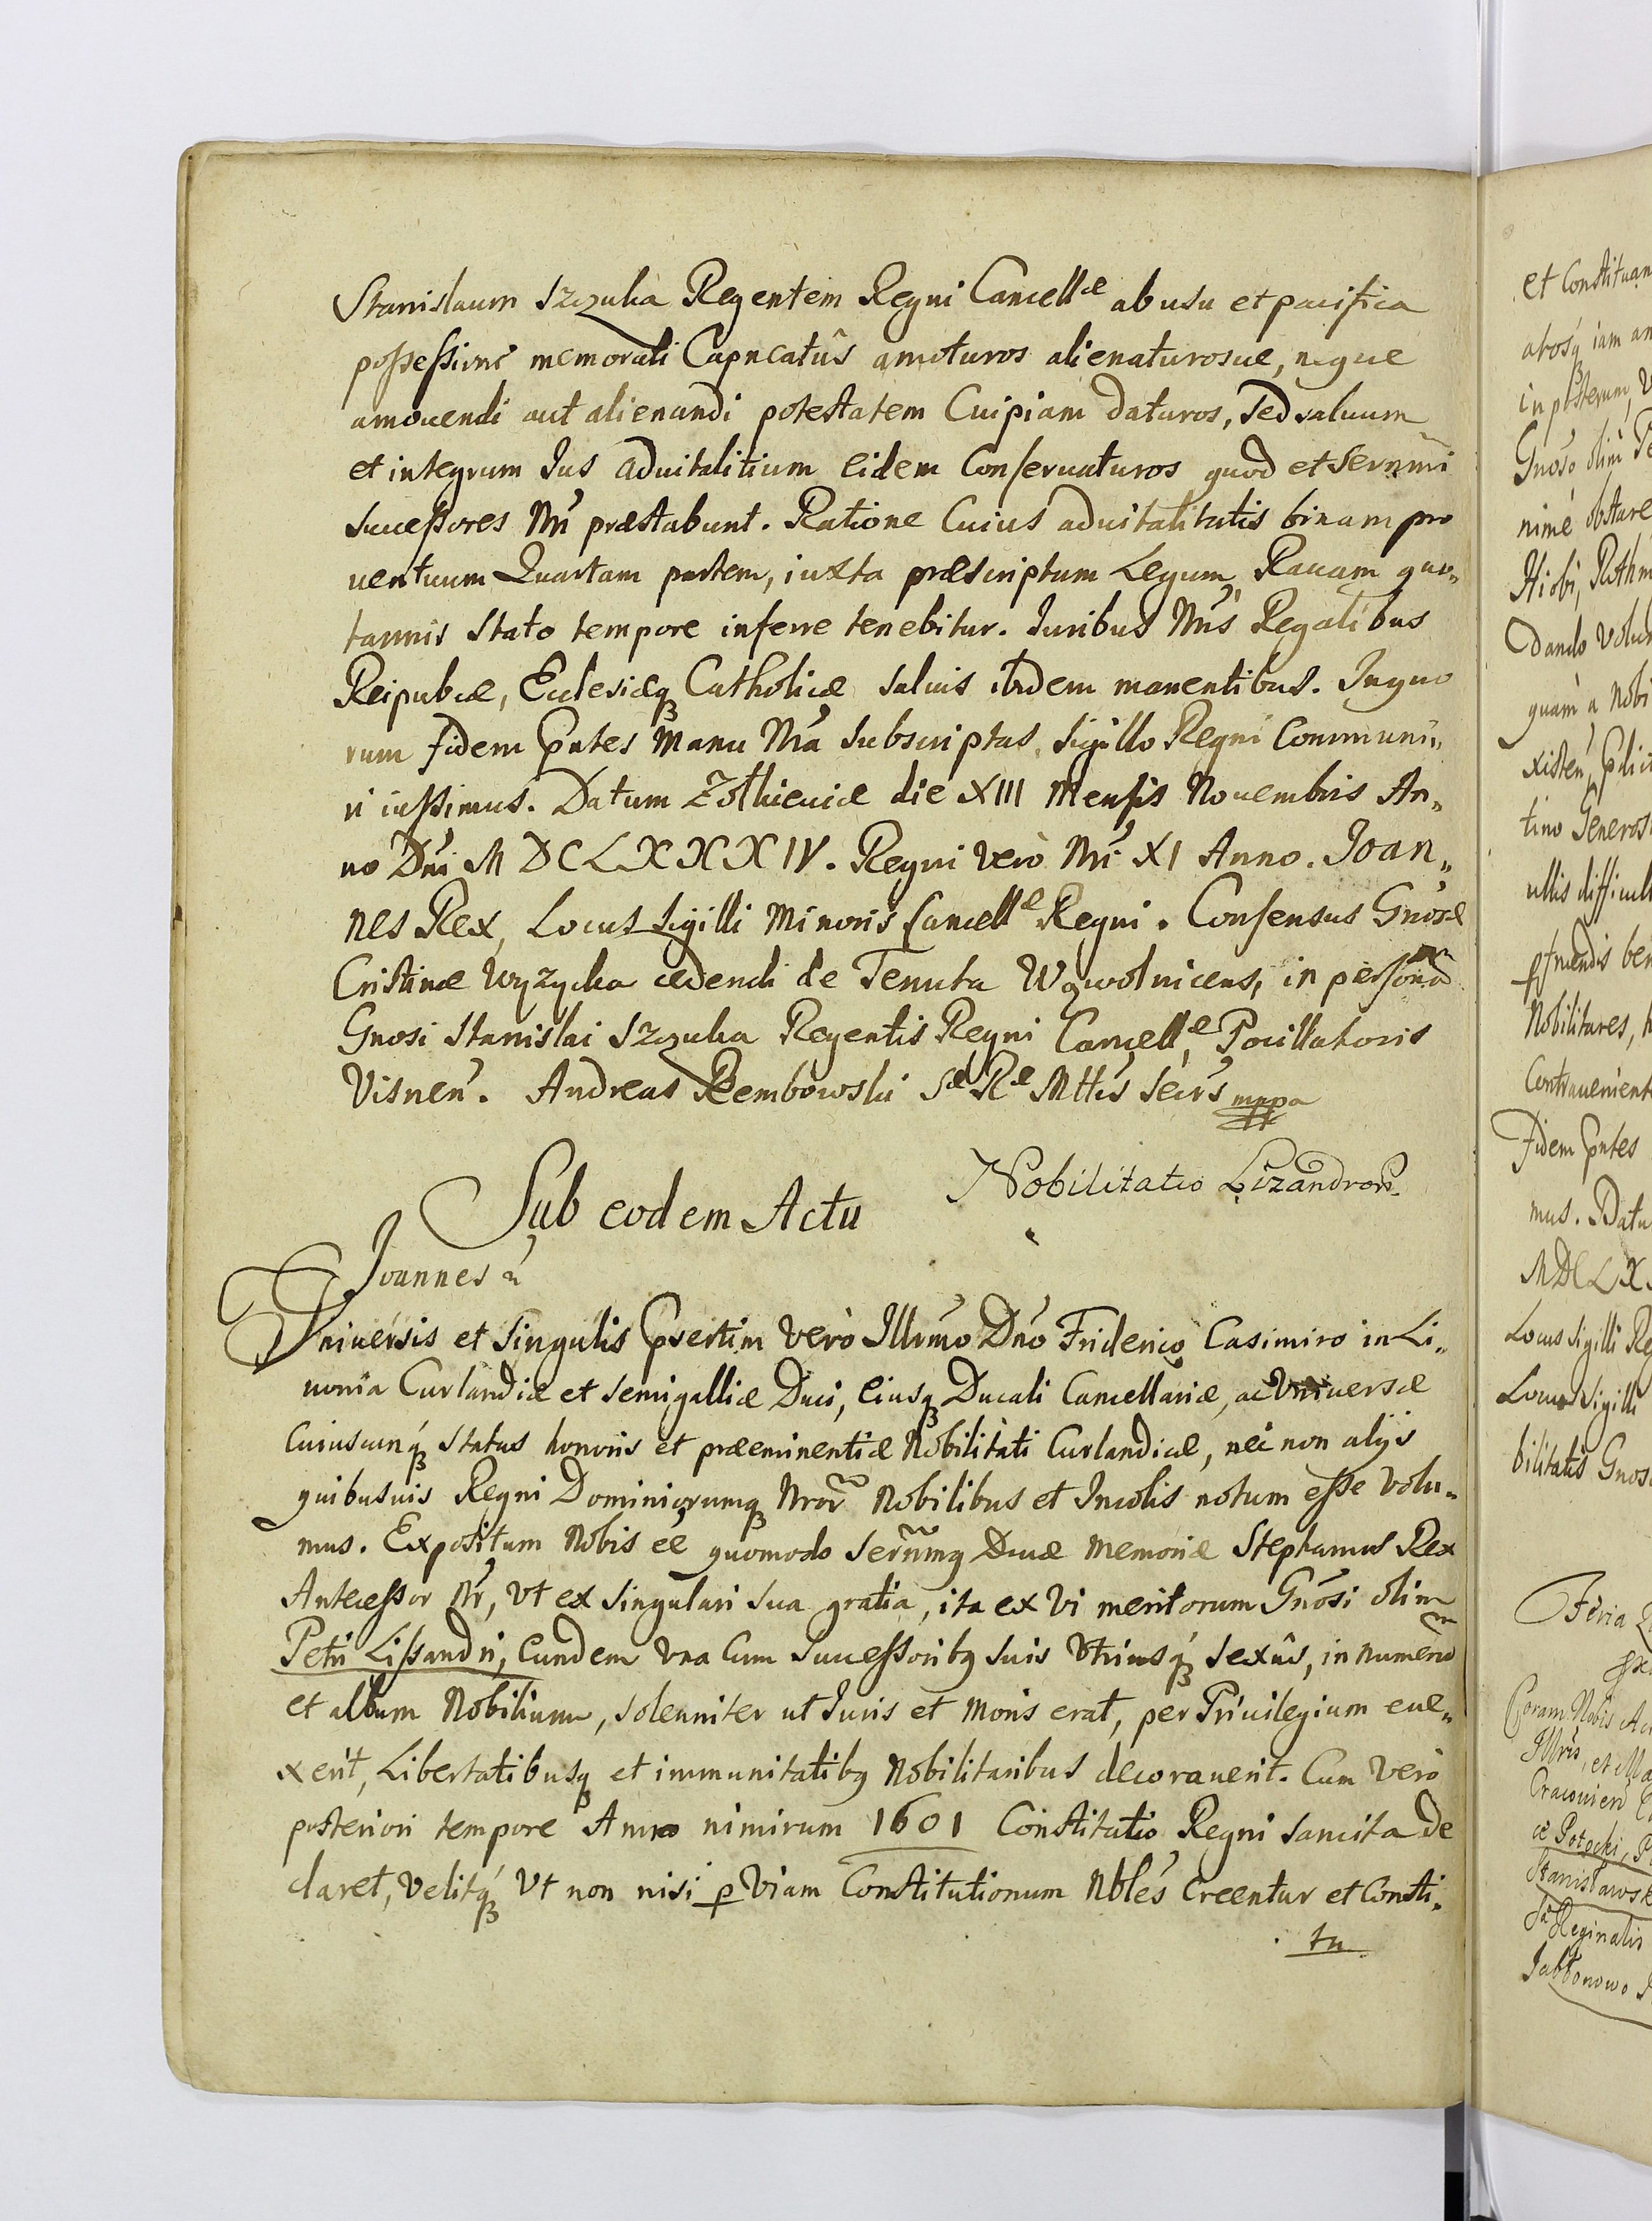 Stanislaum Szczuka Regentem Regni Cancellæ ab usu et pacifica
possessione memorati Capneatûs amoturos alienaturosue, neque
amouendi aut alienandi potestatem Cuipiam daturos, Sed saluum
et integrum Jus aduitalitium eidem Conseruaturos quod et Sernmi
Successores Nri præstabunt. Ratione Cuius aduitalitatis binam pro
uentuum Quartam partem, iuxta præscriptum Legum, Rauam quo„
tannis Stato tempore inferre tenebitur. Juribus Nris Regalibus
Reipubcæ, Ecclesiæq3 Catholicæ saluis ibidem manentibus. In quo
rum fidem Pntes Manu Nra Subscriptas, Sigillo Regni Communi„
ri iussimus. Datum Zolkieuiæ die XIII Mensis Nouembris An„
no Dni M DCLXXXIV. Regni verò Nri XI Anno. Joan„
nes Rex, Locus Sigilli Minoris Cancellæ Regni. Consensus Gnosæ
Cristinæ Wyzycka cedendi de Tenuta Wąwolnicens, in personam
Gnosi Stanislai Szczuka Regentis Regni Cancellæ, Pocillatoris
Visnen. Andreas Rembowski Sæ Ræ Mttis Secrs mppa
Nobilitatio Lizandrow.
Sub eodem Actu
Joannes
Vniuersis et Singulis Psertim verò Illrmo Dno Friderico Casimiro in Li„
uonia Curlandiæ et Semigalliæ Duci, Eiusq3 Ducali Cancellariæ, ac Vniuersæ
Cuiuscunq3 status honoris et præeminentiæ Nobilitati Curlandicæ, nec non alijs
quibusuis Regni Dominiorumq3 Nror Nobilibus et Incolis notum esse volu„
mus. Expositum Nobis eé quomodo Sernmq Diuæ Memoriæ Stephanus Rex
Antecessor Nr, Vt ex Singulari Sua gratia, ita ex Vi meritorum Gnosi olim
Petri Lissandri, Eundem Vna Cum Successoribq suis Vtriusq3 Sexûs, in numerum
et album Nobilium, Solenniter ut Juris et Moris erat, per Priuilegium eue„
xerit, Libertatibusq3 et immunitatibq Nobilitaribus decorauerit. Cum verò
posteriori tempore Anno nimirum 1601 Constitutio Regni sancita De
claret, Velitq3 Vt non nisi p Viam Constitutionum Nbles Creentur et Consti„
tu
et Constituan
atosq3 iam an
in posterum, V
Gnoso olim Pe
nimé obstare
Hiobi, Rothm
Dando volum
quàm a Nobi
xisten
tino Generos
ullis difficult
pfruendis ben
Nobilitares,
Contrauenient
Fidem Pntes
mus. Datu
MDCLX
Locus Sigilli Re
Locus Sigilli
bilitatis Gnos
Feria
Coram Nobis Ac
Illris, et Ma
Cracouien C
æ Potocki, P
Stanisławsk
Reginalis
Jabłonowo